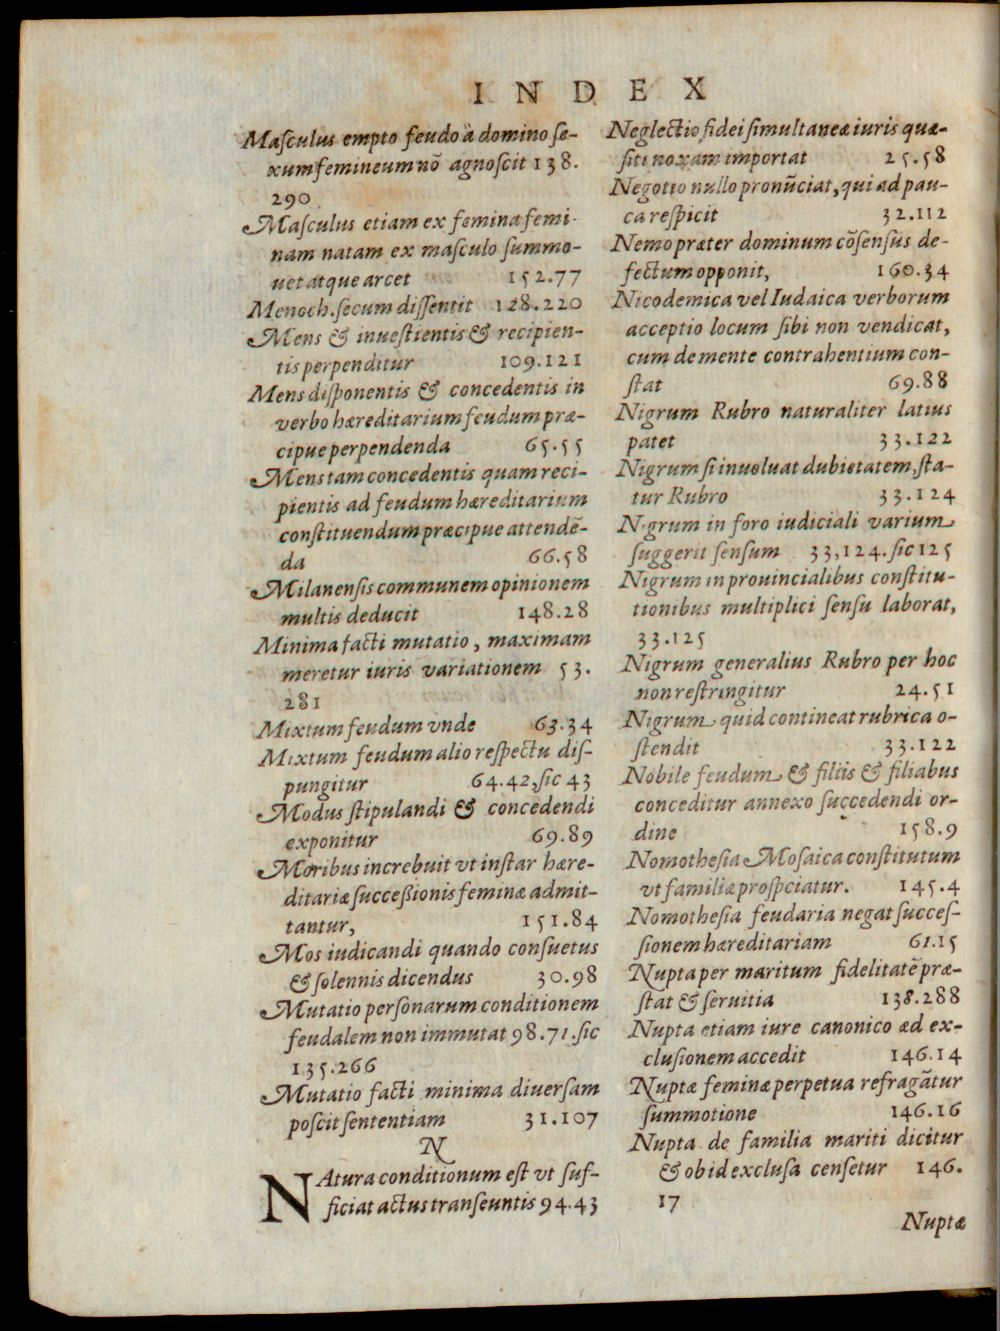 INDEX
Maſculus empto feudo à domino ſe-
xum femineum nō agnoſcit 138.
290
Maſculus etiam ex femina femi-
nam natam ex maſculo ſummo-
uet atque arcet 152.77
Menoch. ſecum diſſentit 128.220
Mens & inueſtientis & recipien-
tis perpenditur 109.121
Mens diſponentis & concedentis in
verbo hæreditarium feudum præ-
cipue perpendenda 65.55
Mens tam concedentis quam reci-
pientis ad feudum hæreditarium
conſtituendum præcipue attendē-
da 66.58
Milanenſis communem opinionem
multis deducit 148.28
Minima facti mutatio, maximam
meretur iuris variationem 53.
281
Mixtum feudum vnde 63.34
Mixtum feudum alio reſpectu diſ-
pungitur 64.42, ſic 43
Modus ſtipulandi & concedendi
exponitur 69.89
Moribus increbuit vt inſtar hære-
ditariæ ſucceßionis feminæ admit-
tantur, 151.84
Mos iudicandi quando conſuetus
& ſolennis dicendus 30.98
Mutatio perſonarum conditionem
feudalem non immutat 98.71. ſic
135.266
Mutatio facti minima diuerſam
poſcit ſententiam 31.107
N
NAtura conditionum eſt vt ſuf-
ficiat actus tranſeuntis 94.43
Neglectio fidei ſimultaneæ iuris quæ-
ſiti noxam importat 25.58
Negotio nullo pronūciat, qui ad pau-
ca reſpicit 32.112
Nemo præter dominum cōſenſus de-
fectum opponit, 160.34
Nicodemica vel Iudaica verborum
acceptio locum ſibi non vendicat,
cum de mente contrahentium con-
ſtat 69.88
Nigrum Rubro naturaliter latius
patet 33.122
Nigrum ſi inuoluat dubietatem, ſta-
tur Rubro 33.124
N.grum in foro iudiciali varium
ſuggerit ſenſum 33,124. ſic 125
Nigrum in prouincialibus conſtitu-
tionibus multiplici ſenſu laborat,
33.125
Nigrum generalius Rubro per hoc
non reſtringitur 24.51
Nigrum quid contineat rubrica o-
ſtendit 33.122
Nobile feudum & filiis & filiabus
conceditur annexo ſuccedendi or-
dine 158.9
Nomotheſia Moſaica conſtitutum
vt familiæ proſpciatur. 145.4
Nomotheſia feudaria negat ſucceſ-
ſionem hæreditariam 61.15
Nupta per maritum fidelitatē præ-
ſtat & ſeruitia 138.288
Nupta etiam iure canonico ad ex-
cluſionem accedit 146.14
Nuptæ feminæ perpetua refragātur
ſummotione 146.16
Nupta de familia mariti dicitur
& ob id excluſa cenſetur 146.
17
Nuptæ